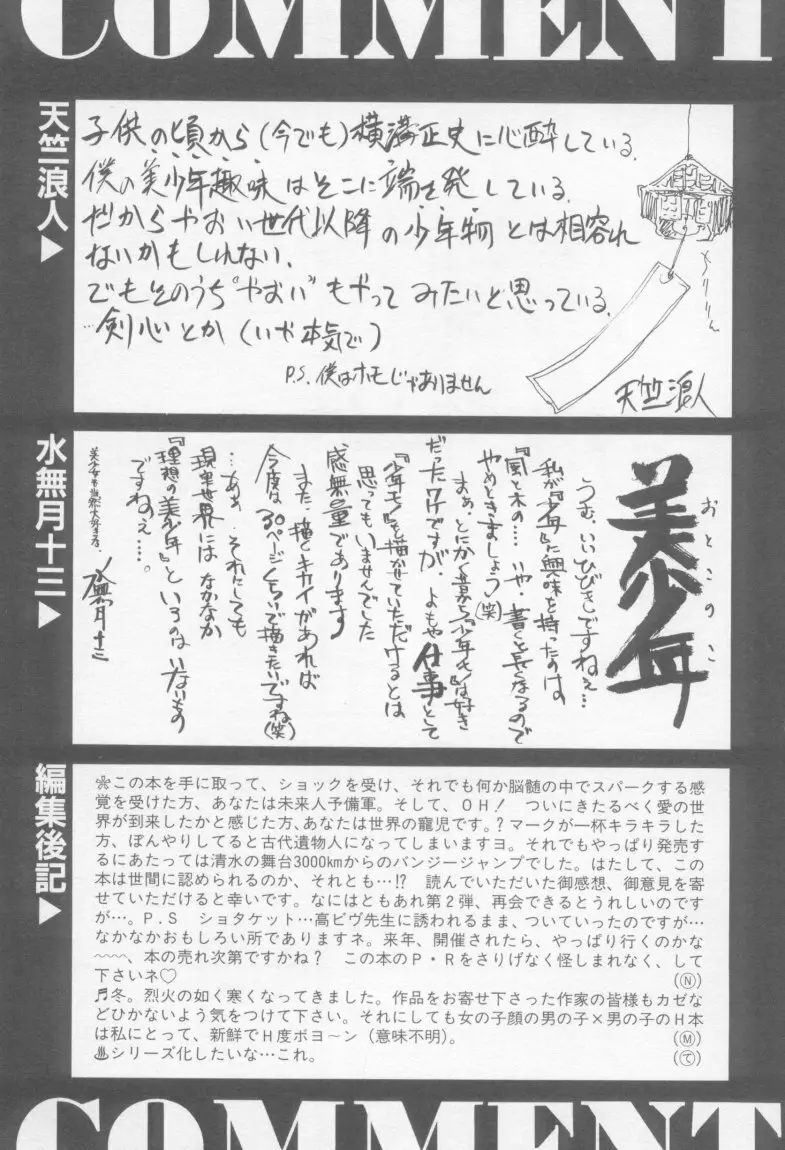 COMMENT
天竺浪人▶
子供の頃から(今でも)横溝正史に心酔している。
僕の美少年趣味はそこに端を発している。
だからやおい世代以降の少年物とは相容れ
ないかもしれない。
でもそのうち“やおい”もやってみたいと思っている。
…剣心とか(いや本気で)
P.S. 僕はホモじゃありません
ちりりん
天竺浪人
水無月十三▶
美少年
おとこのこ
うむ、いいひびきですねぇ…
私が『少年』に興味を持ったのは
『風と木の…』いや、書くと長くなるので
やめときましょう(笑)
まぁ、とにかく昔から『少年モノ』は好き
だったワケですが、よもや仕事として
『少年モノ』を描かせていただけるとは
思ってもいませんでした
感無量であります
また、描くキカイがあれば
今度は30ページくらいで描きたいですね(笑)
…ああ、それにしても
現実世界にはなかなか
『理想の美少年』というのはいないもの
ですねぇ…。
美少女も当然大好きさ。
水無月十三
編集後記▶
❀この本を手に取って、ショックを受け、それでも何か脳髄の中でスパークする感
覚を受けた方、あなたは未来人予備軍。そして、OH! ついにきたるべく愛の世
界が到来したかと感じた方、あなたは世界の寵児です。?マークが一杯キラキラした
方、ぼんやりしてると古代遺物人になってしまいますヨ。それでもやっぱり発売す
るにあたっては清水の舞台3000kmからのバンジージャンプでした。はたして、この
本は世間に認められるのか、それとも…!? 読んでいただいた御感想、御意見を寄
せていただけると幸いです。なにはともあれ第2弾、再会できるとうれしいのです
が…。P.S ショタケット…高ビヴ先生に誘われるまま、ついていったのですが…
なかなかおもしろい所でありますネ。来年、開催されたら、やっぱり行くのかな
〜〜〜、本の売れ次第ですかね? この本のP・Rをさりげなく怪しまれなく、して
下さいネ♡ Ⓝ
♬冬。烈火の如く寒くなってきました。作品をお寄せ下さった作家の皆様もカゼな
どひかないよう気をつけて下さい。それにしても女の子顔の男の子×男の子のH本
は私にとって、新鮮でH度ボヨ〜ン(意味不明)。 Ⓜ
♨シリーズ化したいな…これ。 (て)
COMMENT